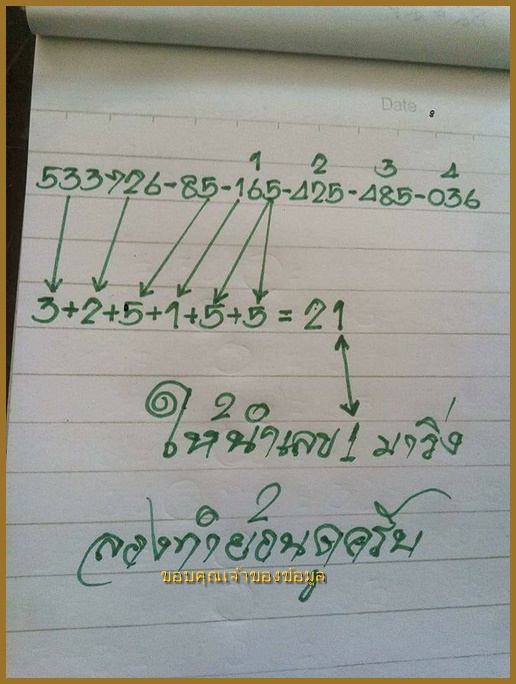 Date
1 2 3 4
533-726-85-165-425-485-036
3+2+5+1+5+5 = 21
ให้นำเลข 1 มาวิ่ง
ลองทำย้อนดูครับ
ขอบคุณเจ้าของข้อมูล